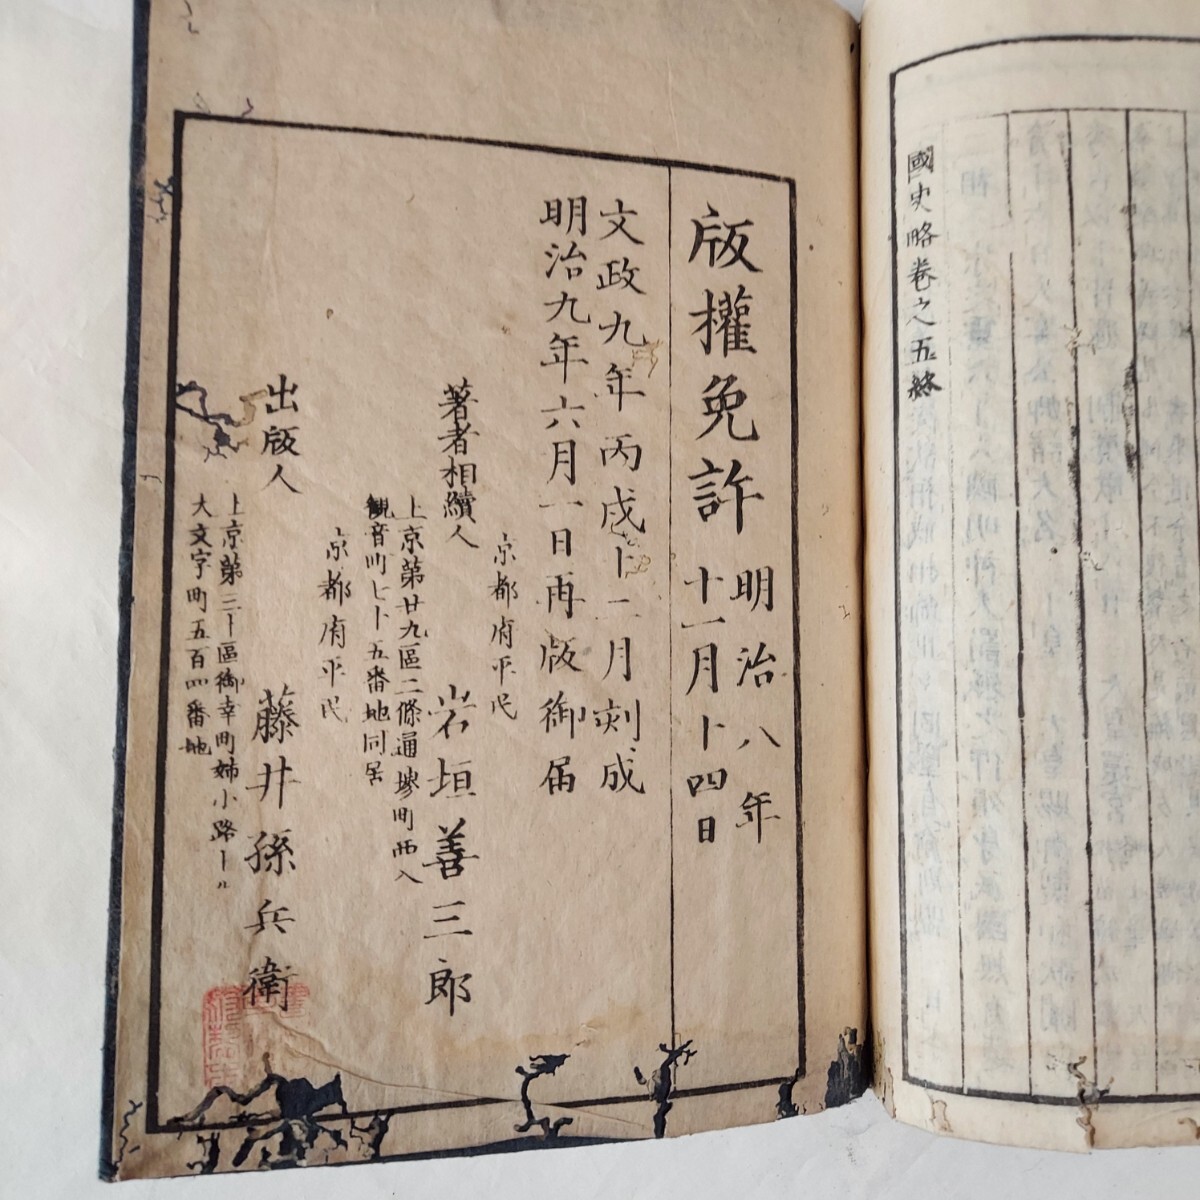 國史略卷之五終
版權免許 明治八年十一月十四日
文政九年丙戌十二月刻成
明治九年六月一日再版御届
京都府平民
著者相續人 岩垣善三郎
上京第廿九區二條通堺町西入
観音町七十五番地同居
京都府平民
出版人 藤井孫兵衛
上京第三十區御幸町姉小路上ル
大文字町五百四番地